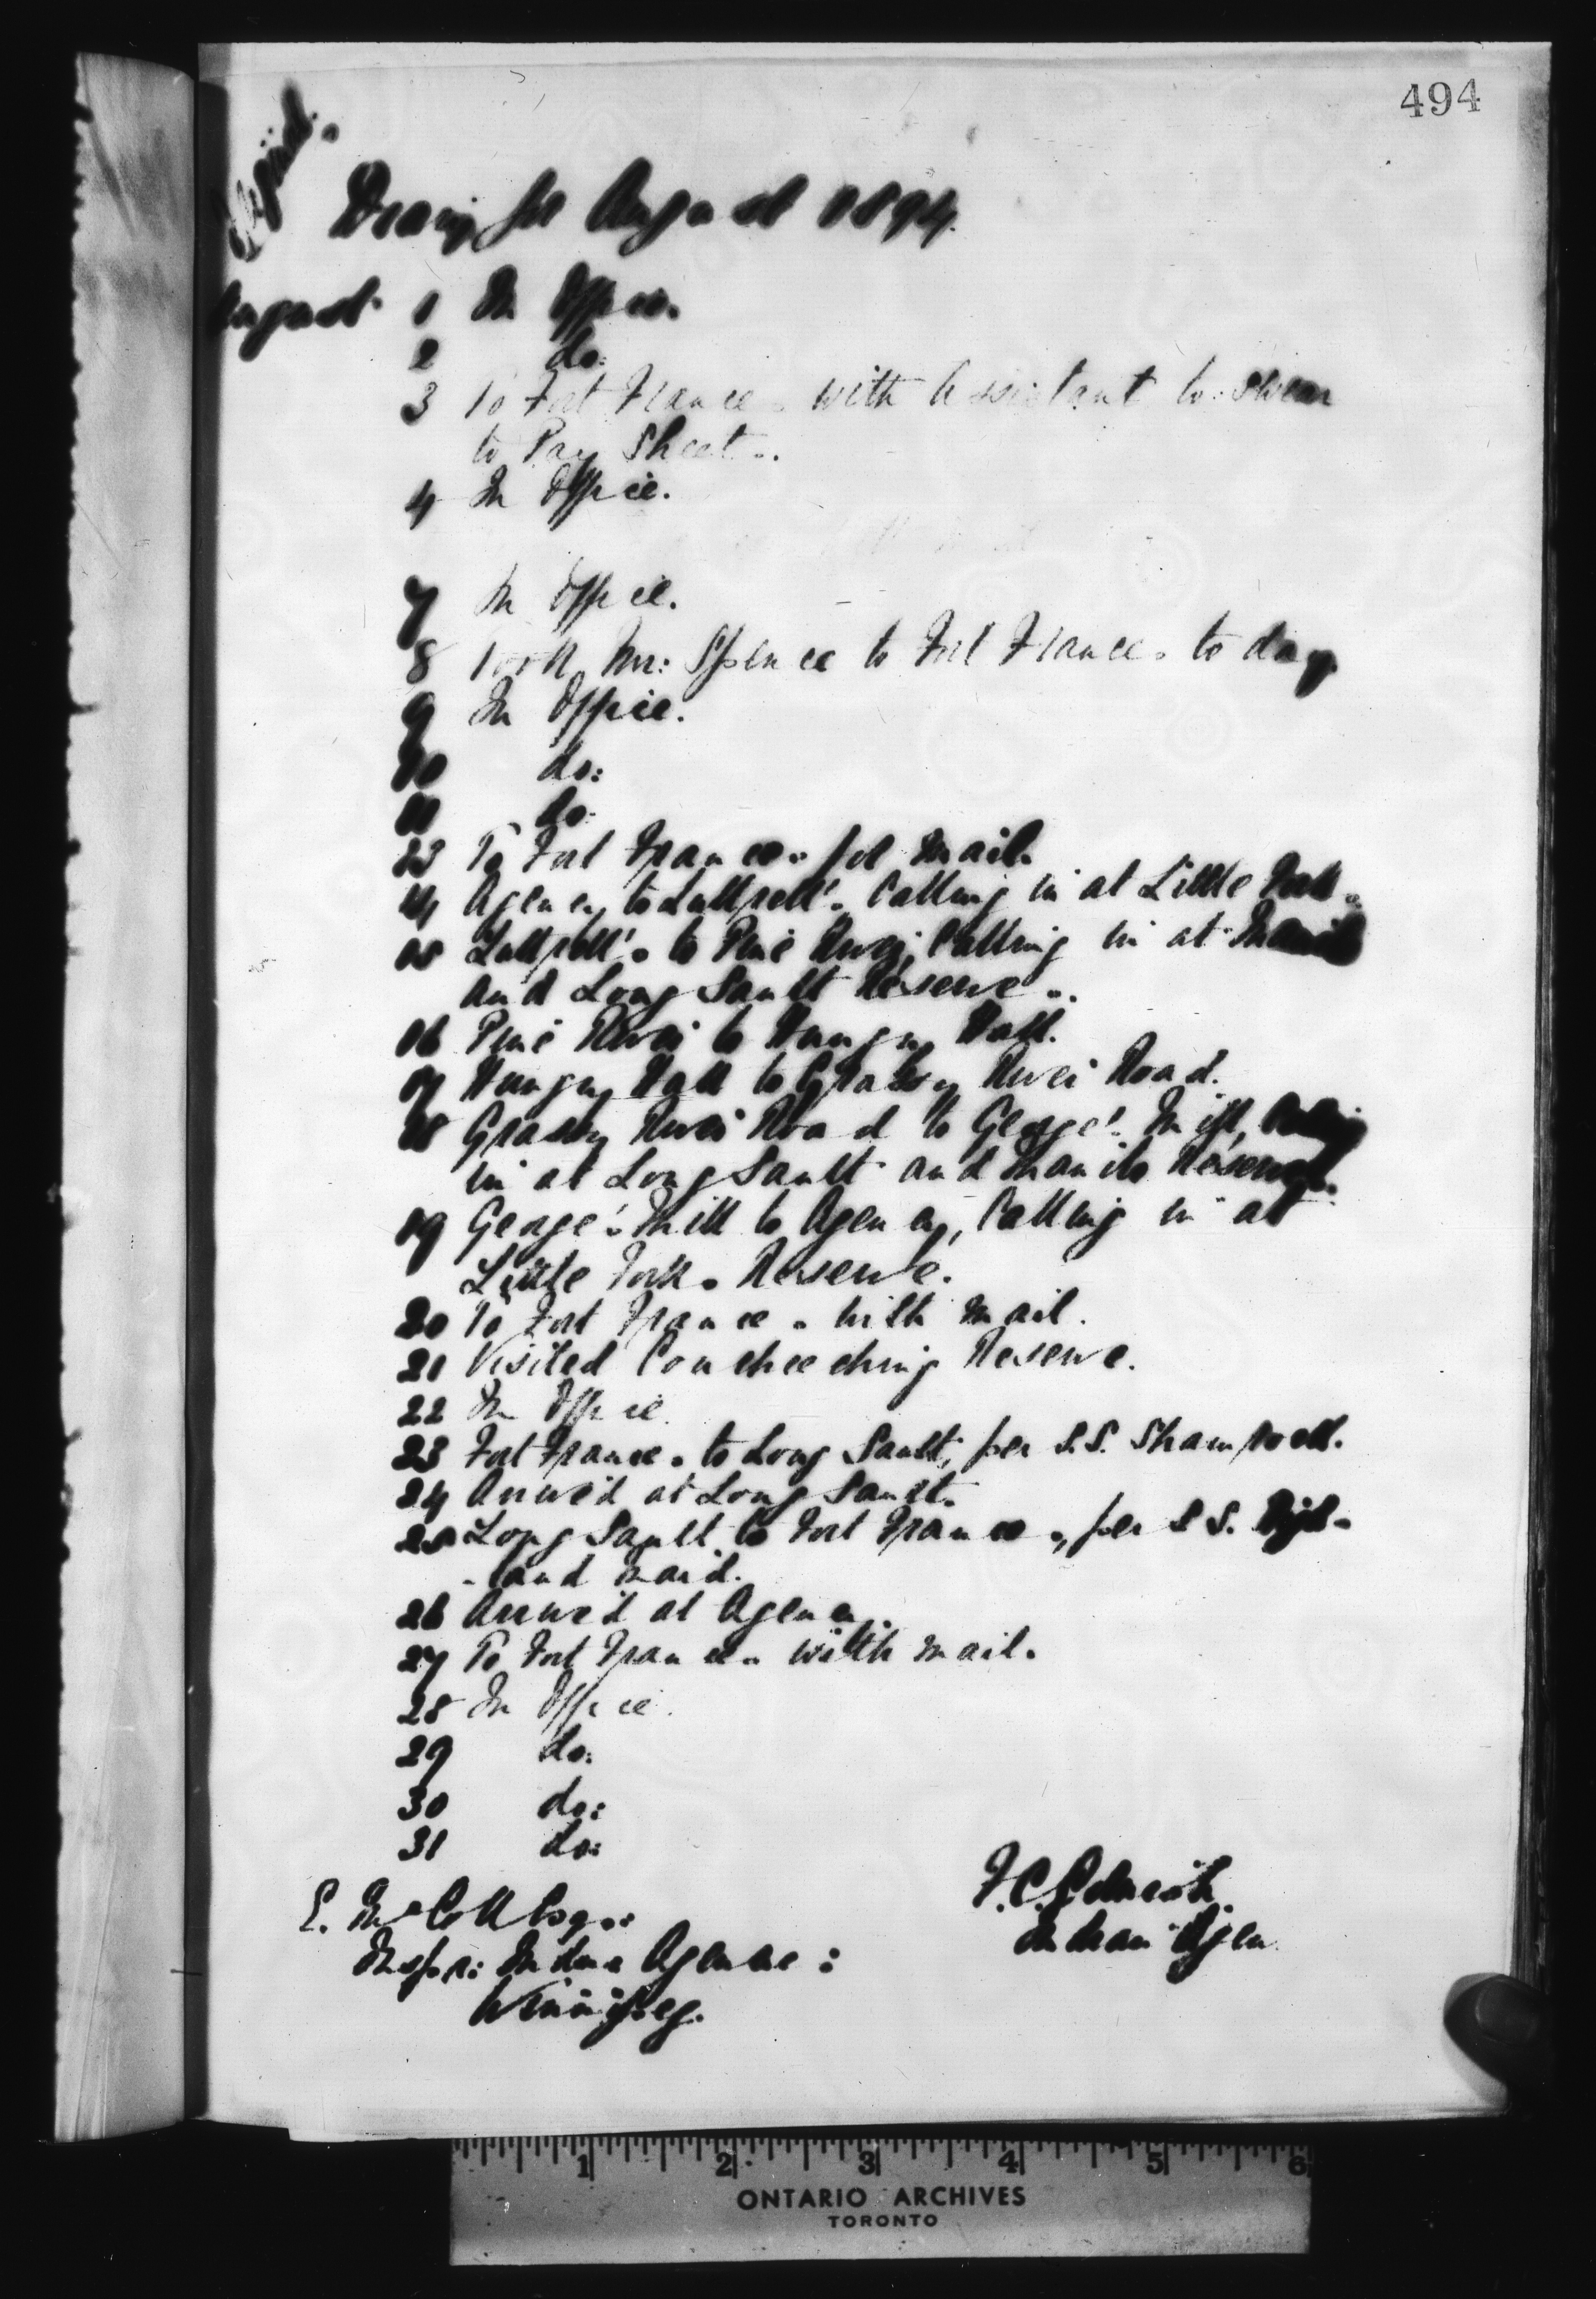 494
Copied.
Diary for August 1894.
August 1 In Office.
2 do:
3 To Fort Frances with Assistant to swear
to Pay Sheets.
4 In Office.
7 In Office.
8 Took Mr: Spence to Fort Frances to day
9 In Office.
10 do:
11 do:
13 To Fort Frances for mail.
14 Agency to Luttrell's Calling in at Little Forks
15 Luttrell's to Pine River, Calling in at Manito
and Long Sault Reserves.
16 Pine River to Hungry Hall.
17 Hungry Hall to Grassy River Road.
18 Grassy River Road to George's Mill, Calling
in at Long Sault and Manito Reserves.
19 George's Mill to Agency, Calling in at
Little Forks Reserve.
20 To Fort Frances with mail.
21 Visited Coucheeching Reserve.
22 In Office.
23 Fort Frances to Long Sault, per S.S. Shamrock.
24 Arrived at Long Sault.
25 Long Sault to Fort Frances, per S.S.
26 Arrived at Agency.
27 To Fort Frances with mail.
28 In Office.
29 do:
30 do:
31 do:
F.C. Cornish
Indian Agen
E. McColl Esq:
Inspr: Indian Agencies:
Winnipeg.
1 2 3 4 5 6
ONTARIO ARCHIVES
TORONTO